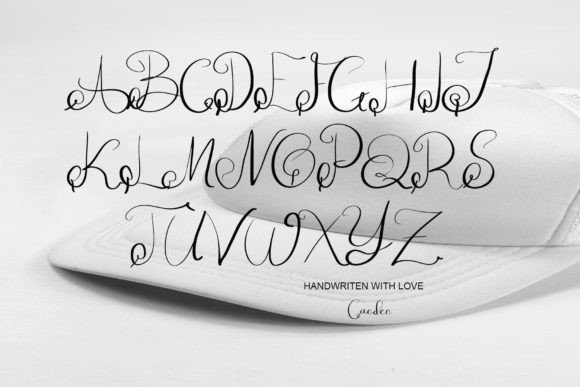 ABCDEFGHIJ
KLMNOPQRS
TUVWXYZ
HANDWRITEN WITH LOVE